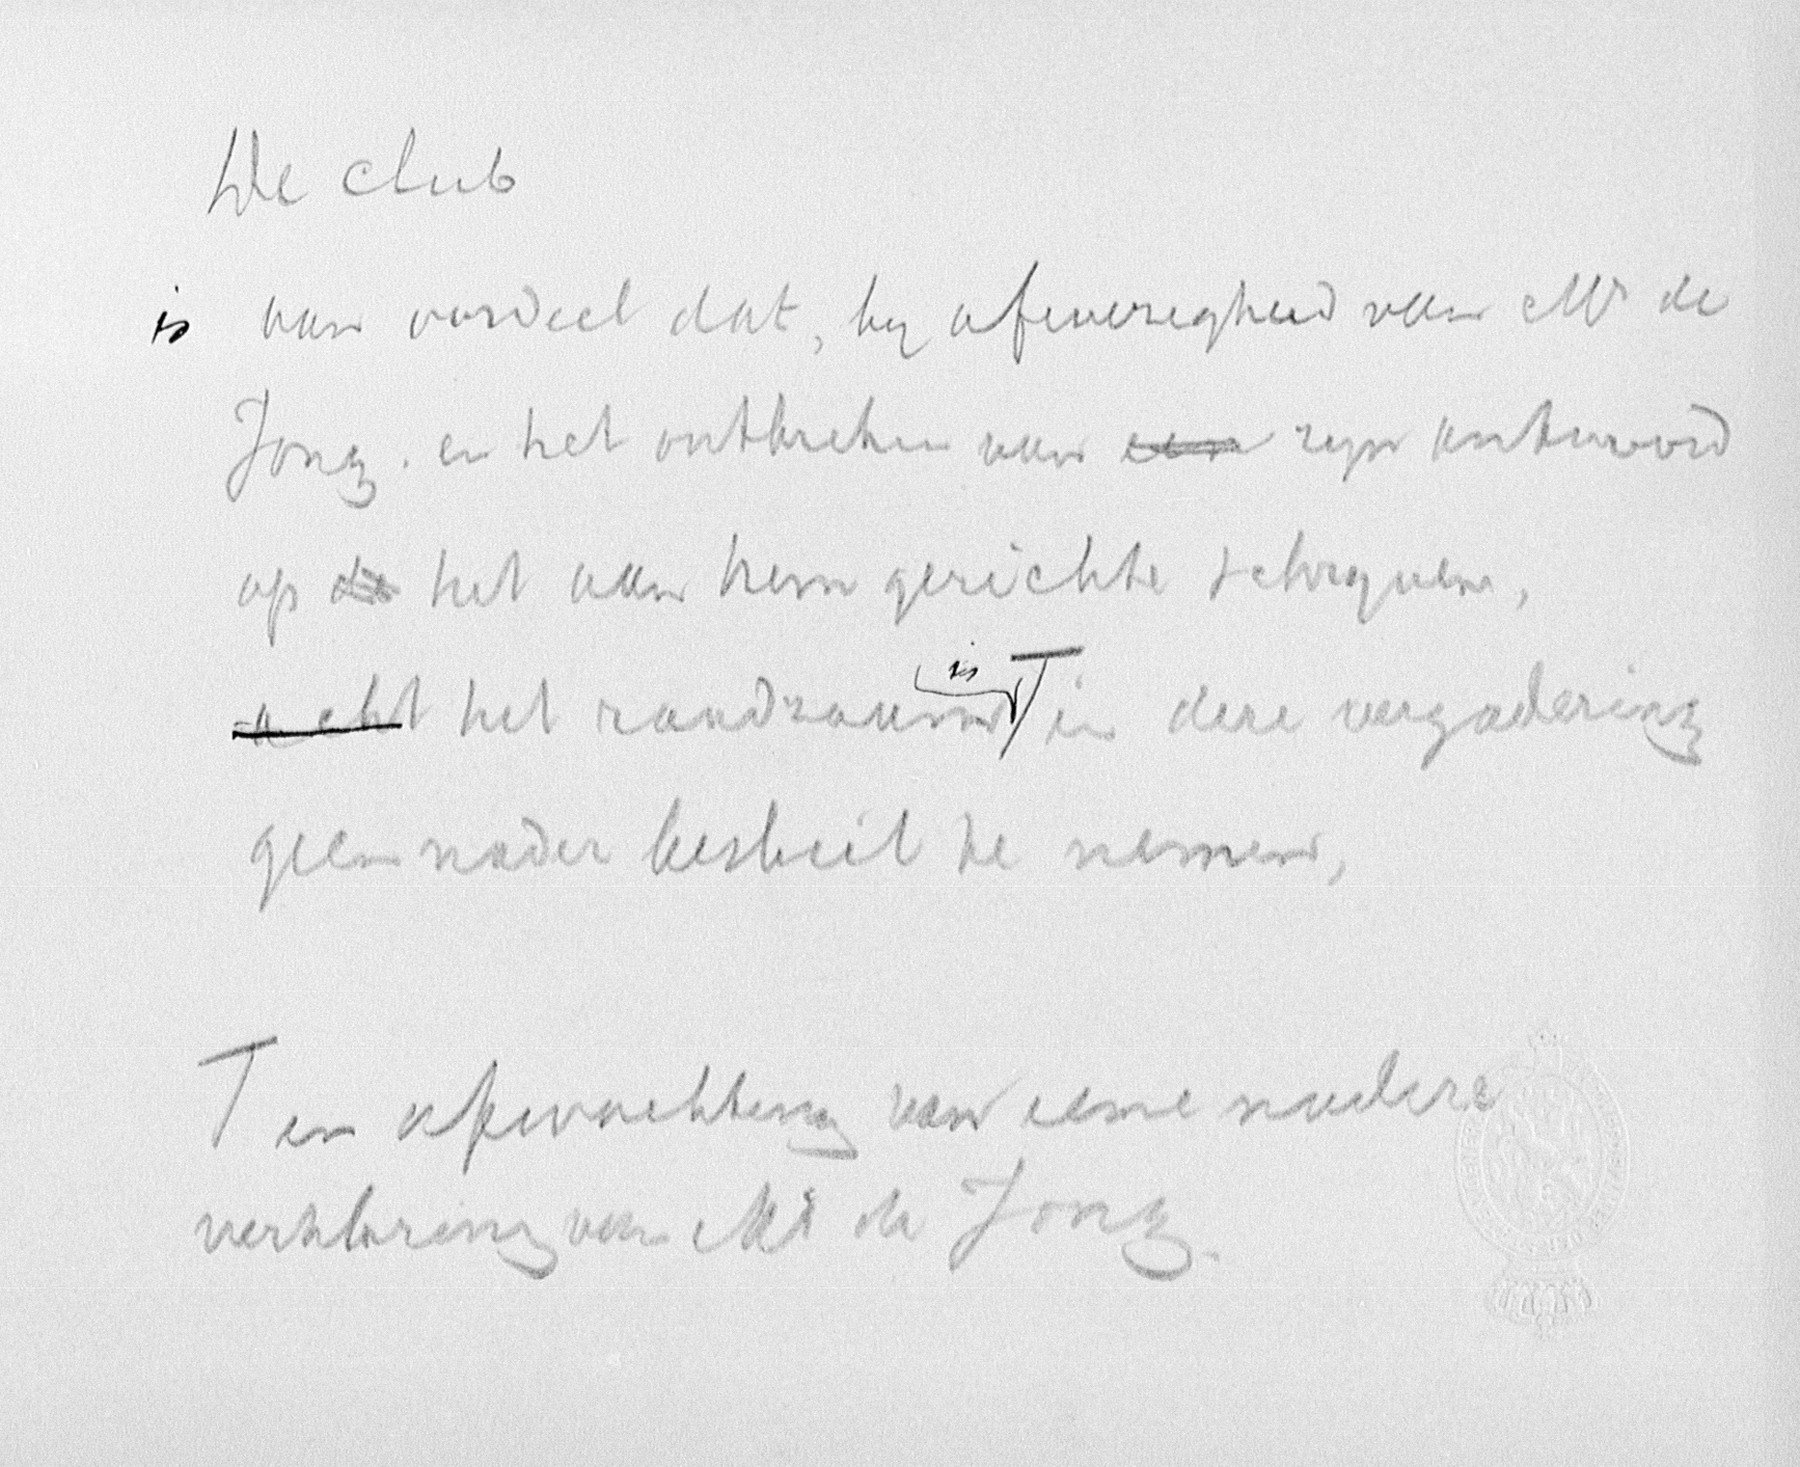 De club
is van oordeel dat, by afwezigheid van Mr de
Jong. en het ontbreken van een zyn antwoord
op de het aan hem gerichte schryven,
acht het raadzaam is T in deze vergadering
geen nader besluit te nemen,
T in afwachting van eene nadere
verklaring van Mr de Jong.